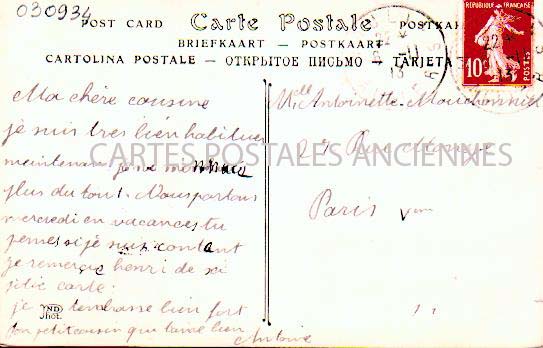 030934
POST CARD Carte Postale POSTKARTE
BRIEFKAART — POSTKAART
CARTOLINA POSTALE — ОТКРЫТОЕ ПИСЬМО — TARJETA
RÉPUBLIQUE FRANÇAISE
10c
POSTES
22
11
13
Ma chère cousine
je suis tres bien habituer
maintenant je ne
plus du tout. Nous partons
mercredi en vacances tu
penses si je suis contant
je remercie henri de si
jolie carte.
je tembrasse bien fort
ton petit cousin qui taime bien
Antoine
ND
Phot.
Mlle Antoinette
27 Rue
Paris
CARTES POSTALES ANCIENNES